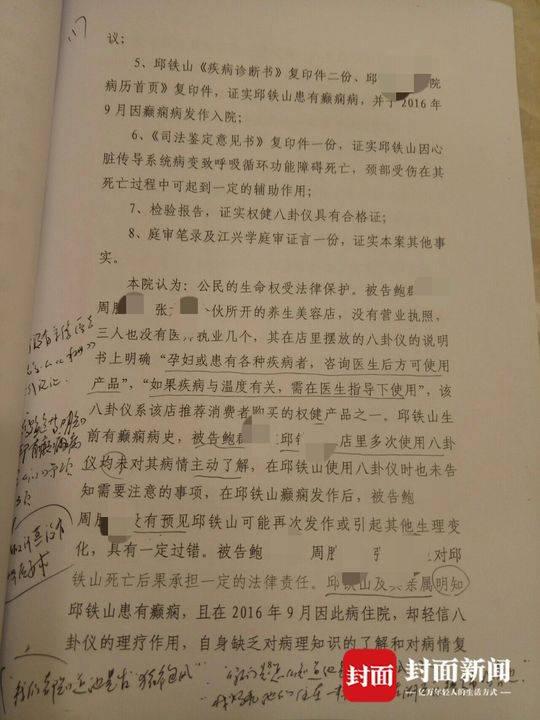 议；
5、邱铁山《疾病诊断书》复印件二份、邱 院
病历首页》复印件，证实邱铁山患有癫痫病，并于2016年
9月因癫痫病发作入院；
6、《司法鉴定意见书》复印件一份，证实邱铁山因心
脏传导系统病变致呼吸循环功能障碍死亡，颈部受伤在其
死亡过程中可起到一定的辅助作用；
7、检验报告，证实权健八卦仪具有合格证；
8、庭审笔录及江兴学庭审证言一份，证实本案其他事
实。
本院认为：公民的生命权受法律保护。被告鲍
周 张 伙所开的养生美容店，没有营业执照，
三人也没有医 执业几个，其在店里摆放的八卦仪的说明
书上明确“孕妇或患有各种疾病者，咨询医生后方可使用
产品”，“如果疾病与温度有关，需在医生指导下使用”，该
八卦仪系该店推荐消费者购买的权健产品之一。邱铁山生
前有癫痫病史，被告 邱 店里多次使用八卦
仪均未对其病情主动了解，在邱铁山使用八卦仪时也未告
知需要注意的事项，在邱铁山癫痫发作后，被告鲍
周 没有预见邱铁山可能再次发作或引起其他生理变
化，具有一定过错。被告鲍 周 对邱
铁山死亡后果承担一定的法律责任。邱铁山及 亲属明知
邱铁山患有癫痫，且在2016年9月因此病住院，却轻信八
卦仪的理疗作用，自身缺乏对病理知识的了解和对病情复
封面 封面新闻
亿万年轻人的生活方式